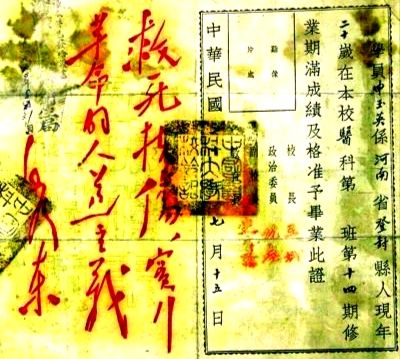 學員申玉英係河南省登封縣人現年
二十歲在本校醫科第 班第十四期修
業期滿成績及格准予畢業此證
校長
政治委員
黏像
片處
中華民國 七月十五日
救死扶傷、實行
革命的人道主義
毛澤東